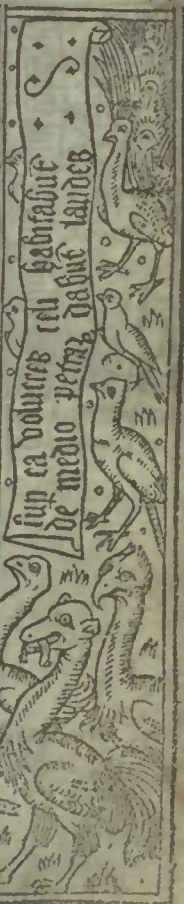 sup ea volucres celi habitabūt
de medio petraꝝ dabūt laudes